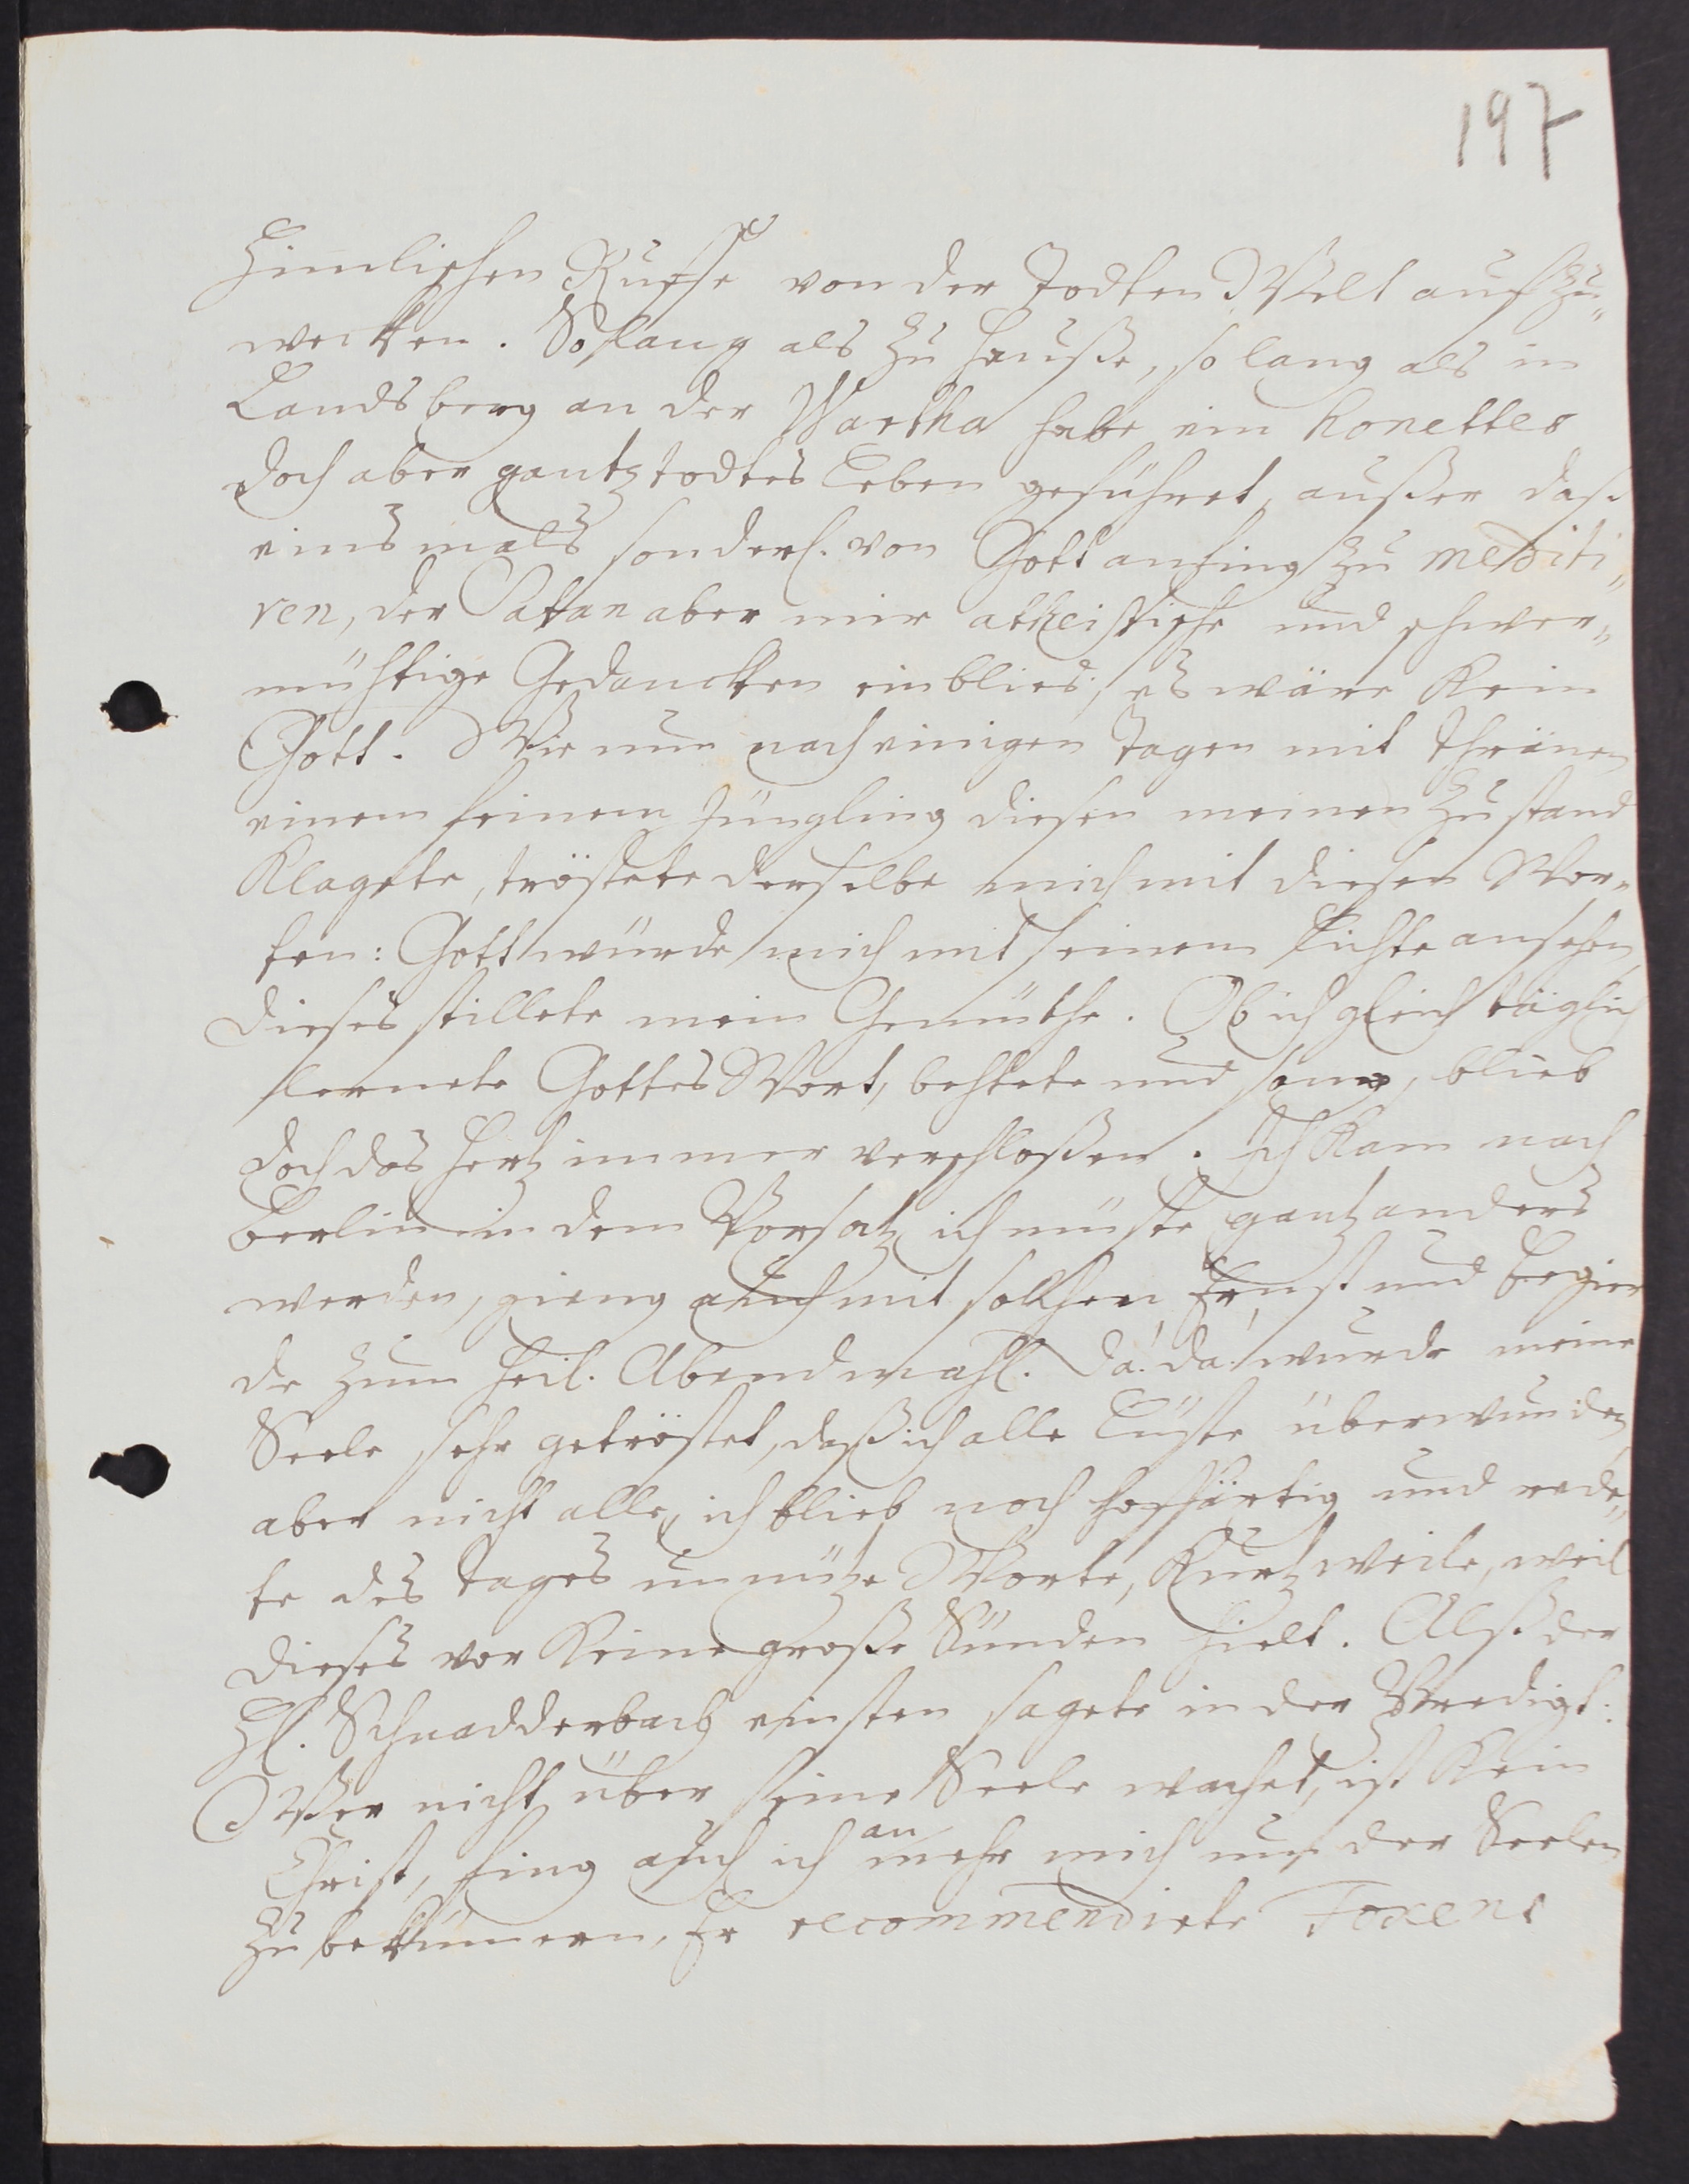 197
Himlischen Ruffe von der todten Welt aufzu„
wecken. So lang als zu Hauße, so lang als in
Landsberg an der Wartha habe ein honettes
doch aber gantz todtes Leben geführet, außer daß
einsmals sonderl. von Gott anfing zu mediti„
ren, der Satan aber mir atheistische und schwer„
mühtige Gedancken einblies, es wäre kein
Gott. Wie nun nach einigen Tagen mit Thränen
einem feinem Jüngling diesen meinen Zustand
klagete, tröstete derselbe mich mit diesen Wor„
ten: Gott würde mich mit seinem Lichte ansehen,
dieses stillete mein Gemüthe. Ob ich gleich täglich
lernete Gottes Wort, behtete und sang, blieb
doch das Hertz immer verschloßen. Ich kam nach
Berlin in dem Vorsatz ich müste gantz anders
werden, gieng auch mit solchen Ernst und Begier
de zum Heil. Abendmahl. Da! da! wurde meine
Seele sehr getröstet, daß ich alle Lüste überwunden,
aber nicht alle, ich blieb noch hoffärtig und rede„
te des Tages unnütze Worte, Kurtzweile, weil
dieses vor keine große Sünden hielt. Alß der
H. Schnadderbach einsten sagete in der Predigt:
Wer nicht über seine Seele wachet, ist kein
Christ, fing auch ich an mehr mich um der Seelen
zu bekümmern, Er recommendirte Foxens